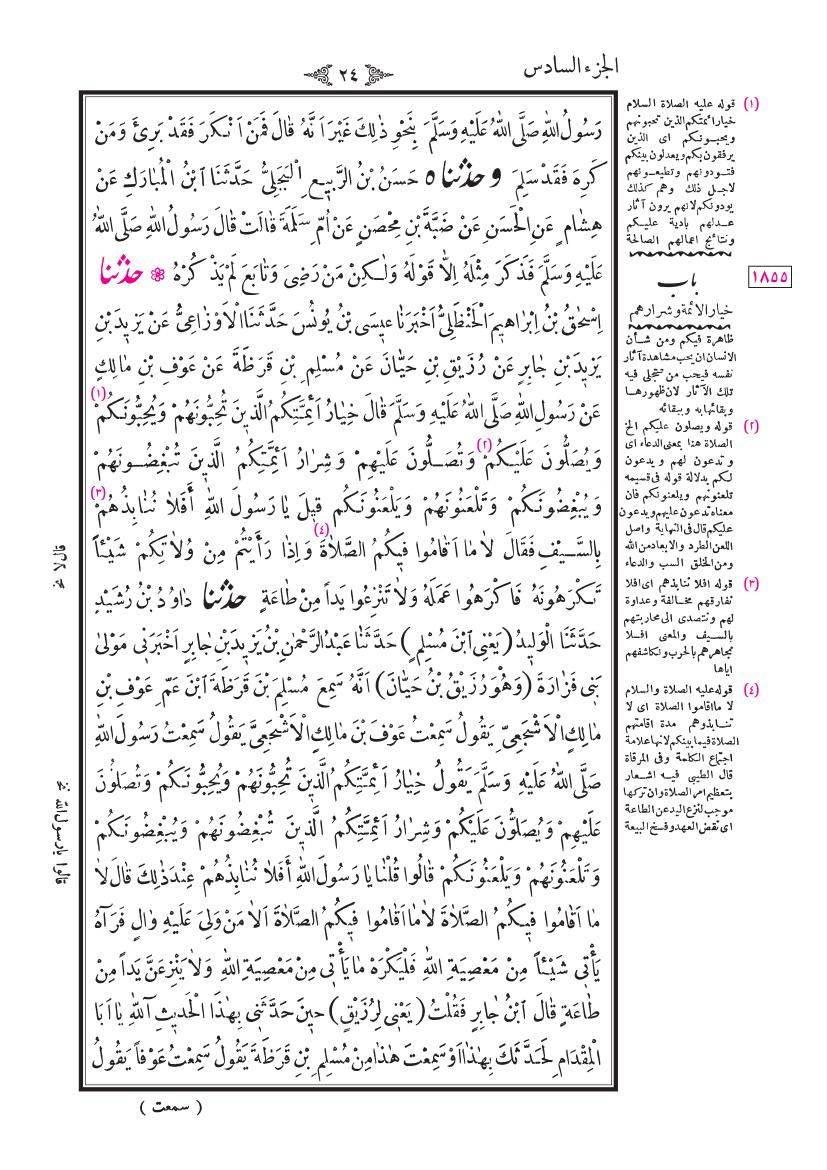 الجزء السادس
٢٤
رَسُولُ اللّٰهِ صَلَّى اللّٰهُ عَلَيْهِ وَسَلَّمَ بِنَحْوِ ذٰلِكَ غَيْرَ اَنَّهُ قَالَ فَمَنْ اَنْكَرَ فَقَدْ بَرِئَ وَمَنْ
كَرِهَ فَقَدْ سَلِمَ وحدثناه حَسَنُ بْنُ الرَّبيعِ الْبَجَلِىُّ حَدَّثَنَا ابْنُ الْمُبَارَكِ عَنْ
هِشَامٍ عَنِ الْحَسَنِ عَنْ ضَبَّةَ بْنِ مِحْصَنٍ عَنْ اُمِّ سَلَمَةَ قَالَتْ قَالَ رَسُولُ اللّٰهِ صَلَّى اللّٰهُ
عَلَيْهِ وَسَلَّمَ فَذَكَرَ مِثْلَهُ اِلاَّ قَوْلَهُ وَلٰكِنْ مَنْ رَضِىَ وَتَابَعَ لَمْ يَذْكُرْهُ ❁ حدثنا
اِسْحٰقُ بْنُ اِبْرَاهيمَ الْحَنْظَلِىُّ اَخْبَرَنَا عيسَى بْنُ يُونُسَ حَدَّثَنَا الْاَوْزَاعِىُّ عَنْ يَزيدَ بْنِ
يَزيدَ بْنِ جَابِرٍ عَنْ رُزَيْقِ بْنِ حَيَّانَ عَنْ مُسْلِمِ بْنِ قَرَظَةَ عَنْ عَوْفِ بْنِ مَالِكٍ
عَنْ رَسُولِ اللّٰهِ صَلَّى اللّٰهُ عَلَيْهِ وَسَلَّمَ قَالَ خِيَارُ اَئِمَّتِكُمُ الَّذينَ تُحِبُّونَهُمْ وَيُحِبُّونَكُمْ (١)
وَيُصَلُّونَ عَلَيْكُمْ (٢) وَتُصَلُّونَ عَلَيْهِمْ وَشِرَارُ اَئِمَّتِكُمُ الَّذينَ تُبْغِضُونَهُمْ
وَيُبْغِضُونَكُمْ وَتَلْعَنُونَهُمْ وَيَلْعَنُونَكُمْ قيلَ يَا رَسُولَ اللّٰهِ أَفَلَا نُنَابِذُهُمْ (٣)
بِالسَّيْفِ فَقَالَ لَا مَا اَقَامُوا فيكُمُ الصَّلَاةَ (٤) وَاِذَا رَأَيْتُمْ مِنْ وُلَاتِكُمْ شَيْئاً
تَكْرَهُونَهُ فَاكْرَهُوا عَمَلَهُ وَلَا تَنْزِعُوا يَداً مِنْ طَاعَةٍ حدثنا دَاوُدُ بْنُ رُشَيْدٍ
حَدَّثَنَا الْوَليدُ (يَعْنِى ابْنَ مُسْلِمٍ) حَدَّثَنَا عَبْدُ الرَّحْمٰنِ بْنُ يَزيدَ بْنِ جَابِرٍ اَخْبَرَنى مَوْلَى
بَنى فَزَارَةَ (وَهُوَ رُزَيْقُ بْنُ حَيَّانَ) اَنَّهُ سَمِعَ مُسْلِمَ بْنَ قَرَظَةَ ابْنَ عَمِّ عَوْفِ بْنِ
مَالِكٍ الْاَشْجَعِىِّ يَقُولُ سَمِعْتُ عَوْفَ بْنَ مَالِكٍ الْاَشْجَعِىَّ يَقُولُ سَمِعْتُ رَسُولَ اللّٰهِ
صَلَّى اللّٰهُ عَلَيْهِ وَسَلَّمَ يَقُولُ خِيَارُ اَئِمَّتِكُمُ الَّذينَ تُحِبُّونَهُمْ وَيُحِبُّونَكُمْ وَتُصَلُّونَ
عَلَيْهِمْ وَيُصَلُّونَ عَلَيْكُمْ وَشِرَارُ اَئِمَّتِكُمُ الَّذينَ تُبْغِضُونَهُمْ وَيُبْغِضُونَكُمْ
وَتَلْعَنُونَهُمْ وَيَلْعَنُونَكُمْ قَالُوا قُلْنَا يَا رَسُولَ اللّٰهِ أَفَلَا نُنَابِذُهُمْ عِنْدَ ذٰلِكَ قَالَ لَا
مَا اَقَامُوا فيكُمُ الصَّلَاةَ لَا مَا اَقَامُوا فيكُمُ الصَّلَاةَ اَلَا مَنْ وَلِىَ عَلَيْهِ وَالٍ فَرَآهُ
يَأْتى شَيْئاً مِنْ مَعْصِيَةِ اللّٰهِ فَلْيَكْرَهْ مَا يَأْتى مِنْ مَعْصِيَةِ اللّٰهِ وَلَا يَنْزِعَنَّ يَداً مِنْ
طَاعَةٍ قَالَ ابْنُ جَابِرٍ فَقُلْتُ (يَعْنى لِرُزَيْقٍ) حينَ حَدَّثَنى بِهٰذَا الْحَديثِ آللّٰهِ يَا اَبَا
الْمِقْدَامِ لَحَدَّثَكَ بِهٰذَا اَوْ سَمِعْتَ هٰذَا مِنْ مُسْلِمِ بْنِ قَرَظَةَ يَقُولُ سَمِعْتُ عَوْفاً يَقُولُ
( سمعت )
(١) قوله عليه الصلاة السلام
خيار ائمتكم الذين تحبونهم
ويحبونكم اى الذين
يرفقون بكم ويعدلون بينكم
فتودونهم وتطيعونهم
لاجل ذلك وهم كذلك
يودونكم لانهم يرون آثار
عدلهم بادية عليكم
ونتائج اعمالهم الصالحة
١٨٥٥
باب
خيار الائمة وشرارهم
ظاهرة فيكم ومن شأن
الانسان ان يحب مشاهدة آثار
نفسه فيحب من تتجلى فيه
تلك الآثار لان ظهورها
وبقائها به وببقائه
(٢) قوله ويصلون عليكم الخ
الصلاة هنا بمعنى الدعاء اى
وتدعون لهم ويدعون
لكم بدلالة قوله فى قسيمه
تلعنونهم ويلعنونكم فان
معناه تدعون عليهم ويدعون
عليكم قال فى النهاية واصل
اللعن الطرد والابعاد من الله
ومن الخلق السب والدعاء
(٣) قوله افلا ننابذهم اى افلا
نفارقهم مخالفة وعداوة
لهم ونتصدى الى محاربتهم
بالسيف والمعنى افلا
نجاهرهم بالحرب ونكاشفهم
اياها
(٤) قوله عليه الصلاة والسلام
لا ما اقاموا الصلاة اى لا
تنابذوهم مدة اقامتهم
الصلاة فيما بينكم لانها علامة
اجتماع الكلمة وفى المرقاة
قال الطيبى فيه اشعار
بتعظيم امر الصلاة وان تركها
موجب لنزع اليد عن الطاعة
اى نقض العهد وفسخ البيعة
قال لا نخ
قالوا يا رسول الله نخ